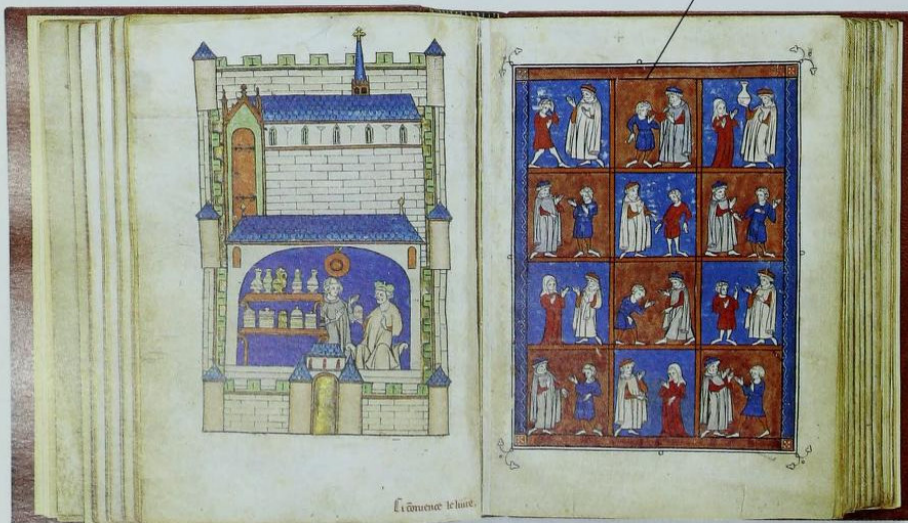 Ci cõmence le liure.